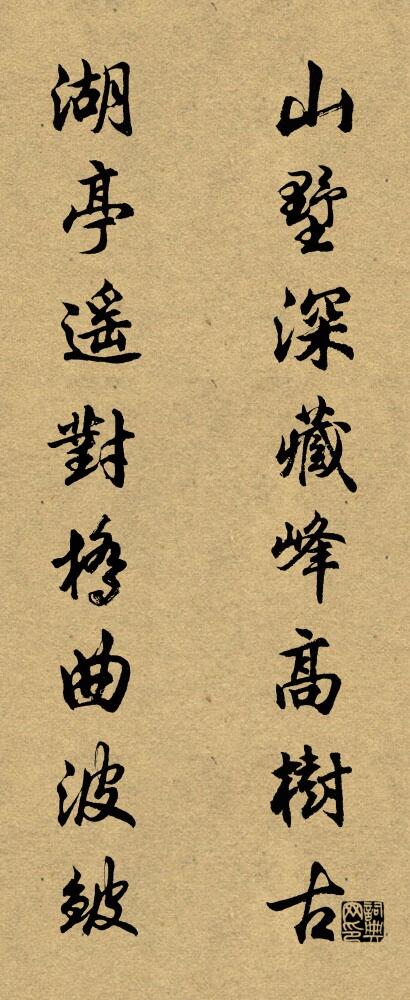 山墅深藏峰高樹古
湖亭遙對橋曲波皺
詞典网印